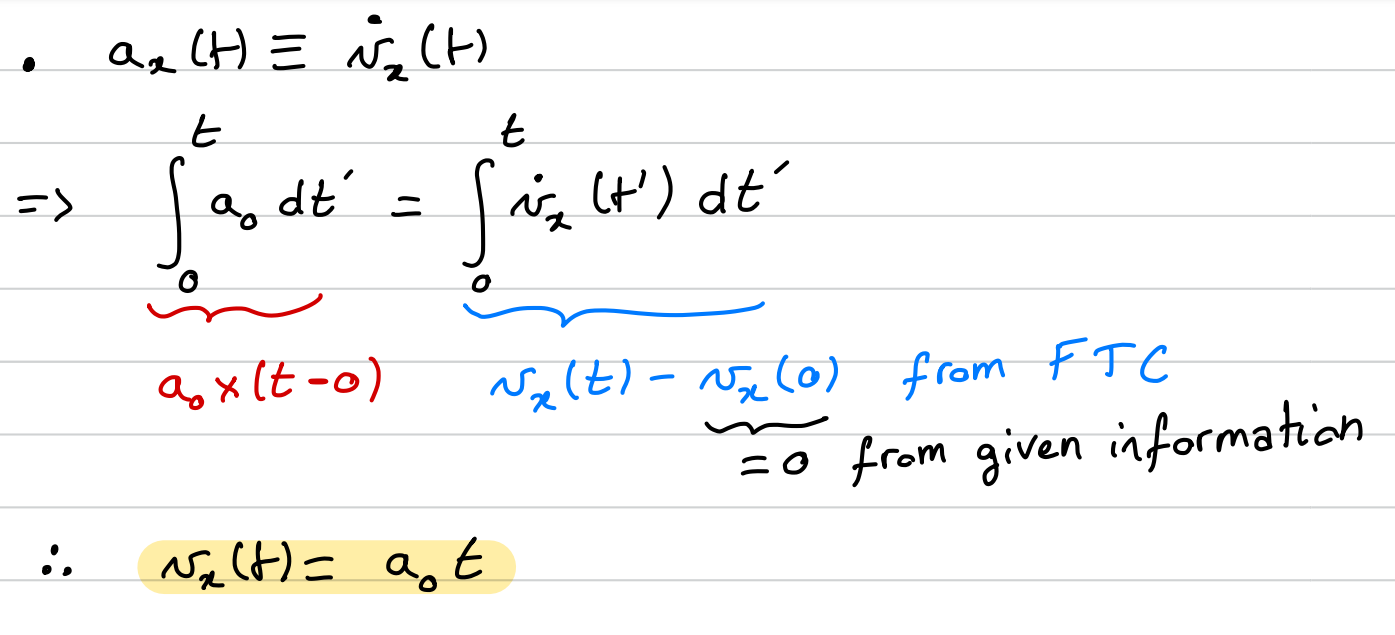 • aₓ(t) ≡ v̇ₓ(t)
=> ∫₀ᵗ a₀ dt′ = ∫₀ᵗ v̇ₓ(t′) dt′
a₀×(t−0) vₓ(t) − vₓ(0) from FTC
=0 from given information
∴ vₓ(t) = a₀ t